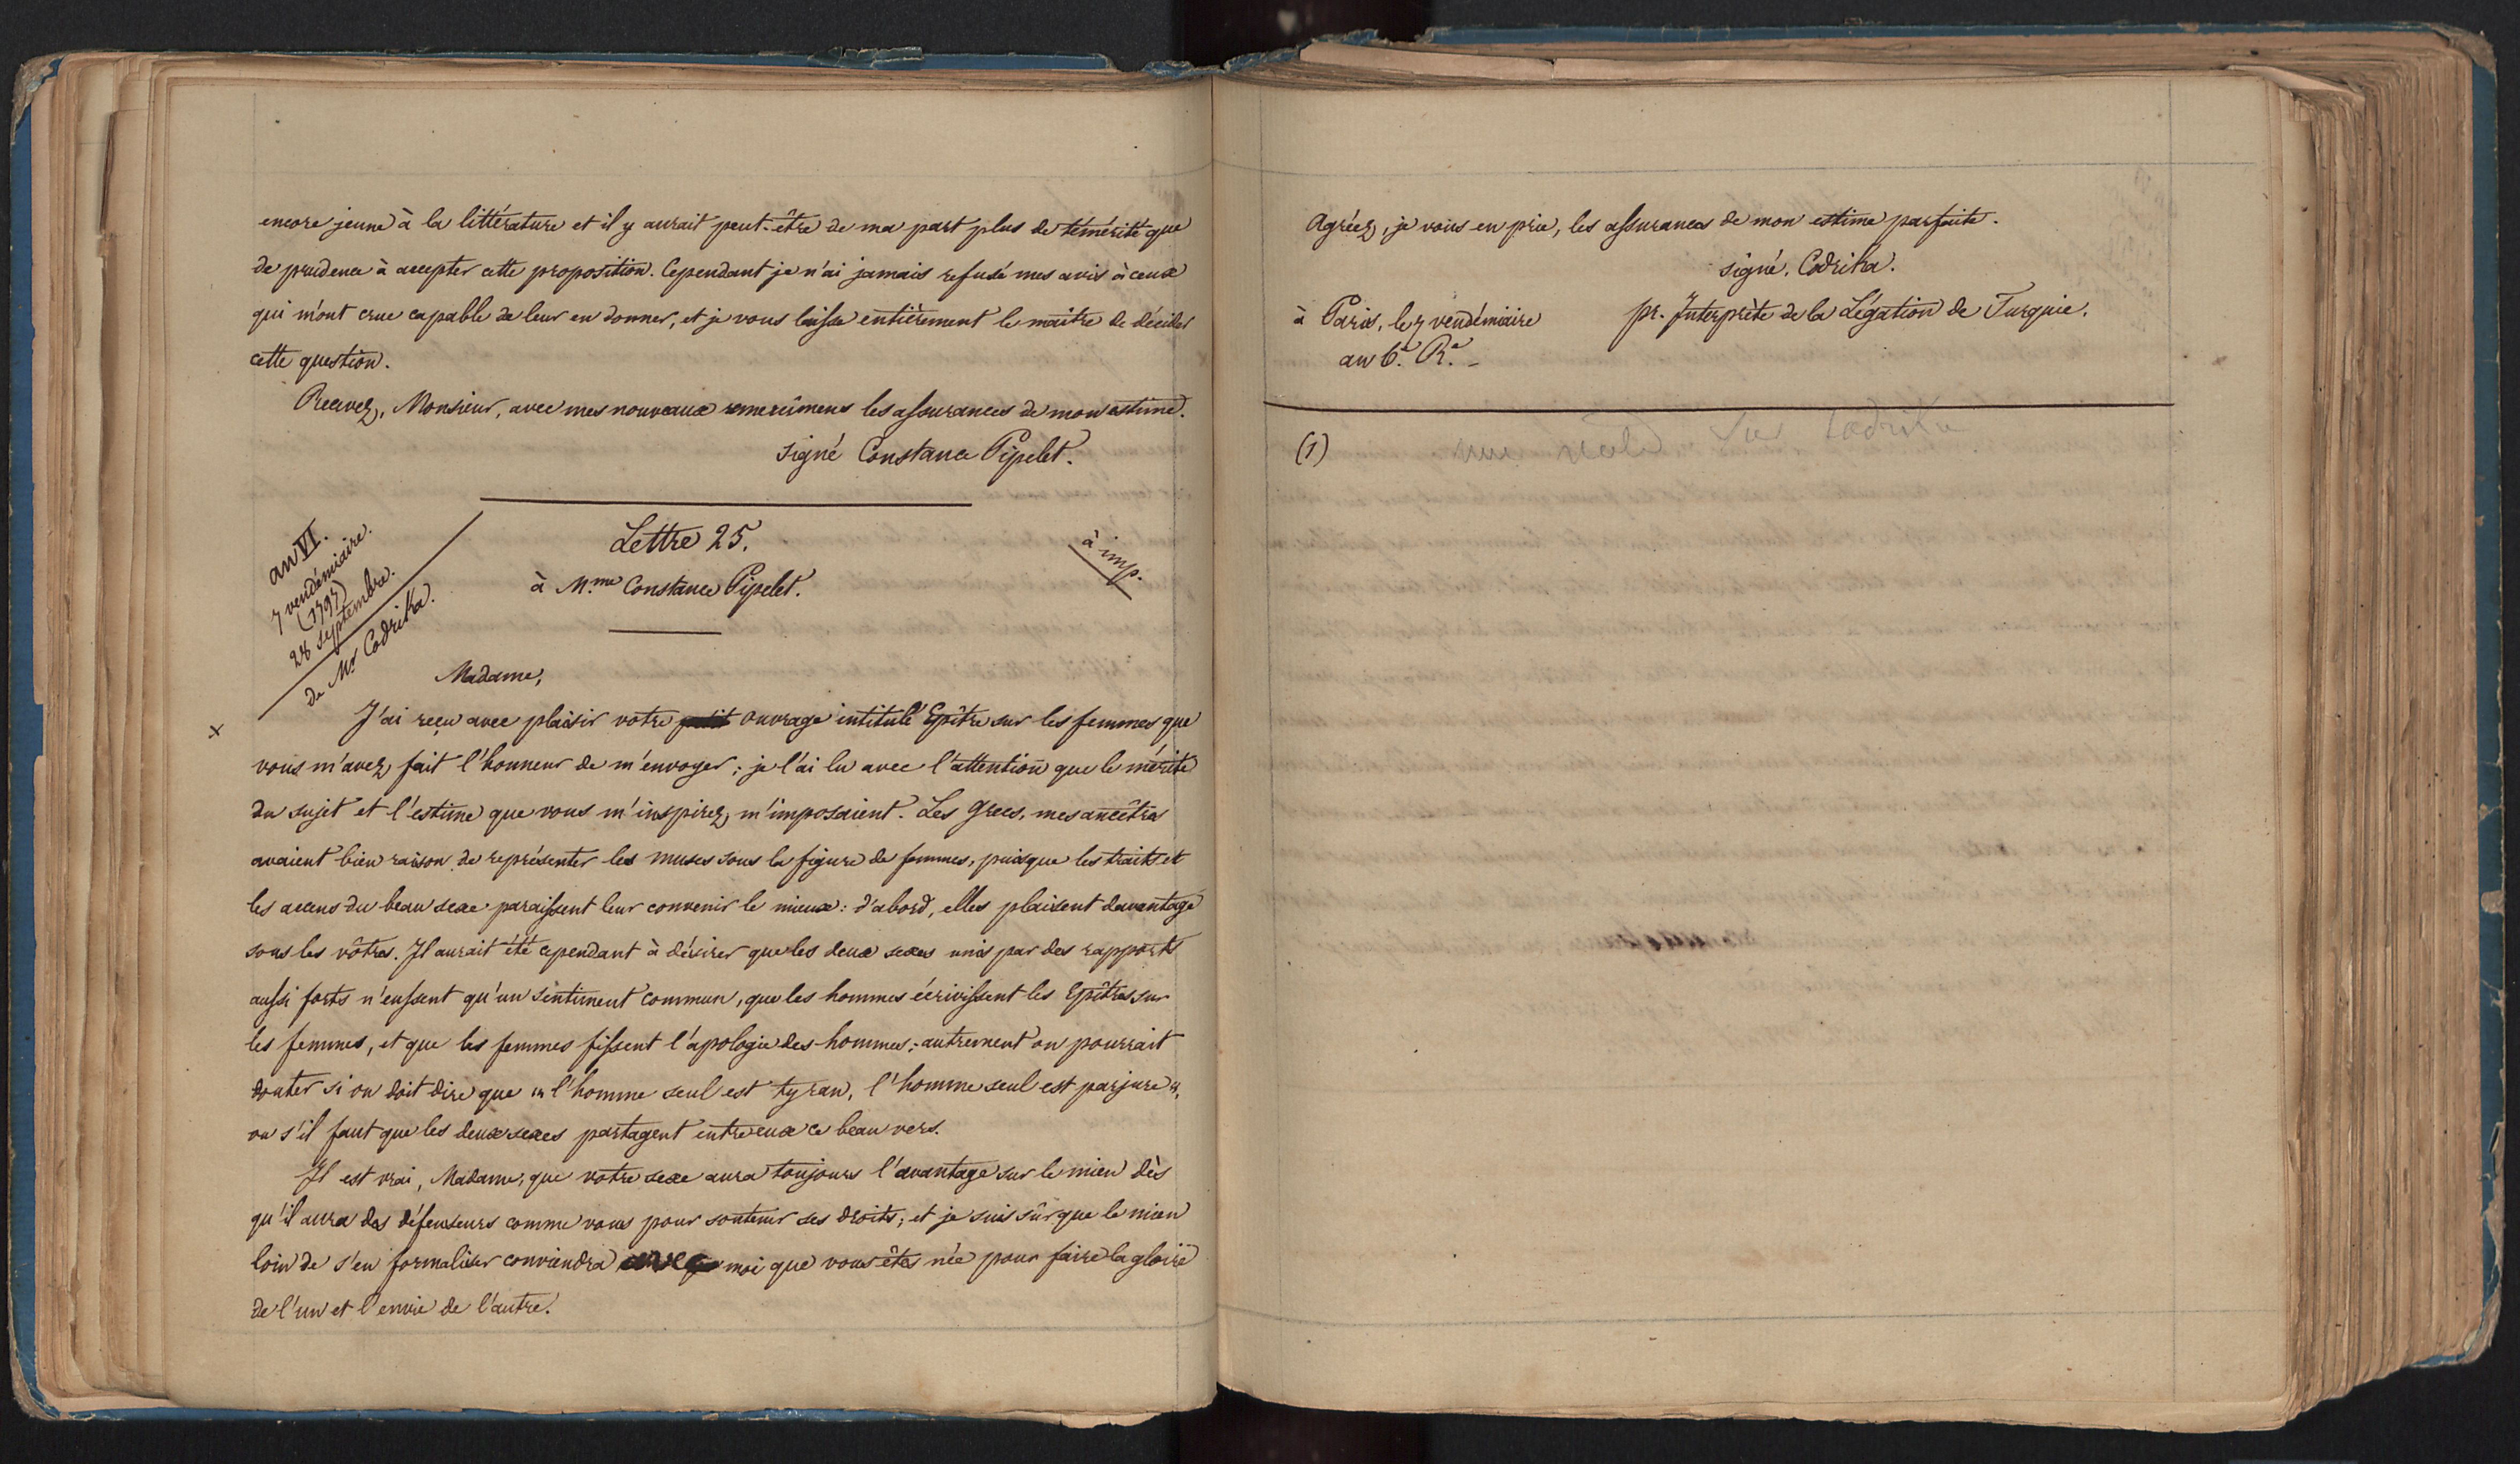 encore jeune à la littérature et il y aurait peut-être de ma part plus de témérité que
de prudence à accepter cette proposition. Cependant je n'ai jamais refusé mes avis à ceux
qui m'ont crue capable de leur en donner, et je vous laisse entièrement le maître de décider
cette question.
Recevez, Monsieur, avec mes nouveaux remercîmens les assurances de mon estime.
signé Constance Pipelet.
an VI.
7 vendémiaire.
(1797)
28 septembre.
de Mr Codrika.
Lettre 25.
à imp.
à M.me Constance Pipelet.
Madame,
x
J'ai reçu avec plaisir votre petit ouvrage intitulé Epître sur les femmes que
vous m'avez fait l'honneur de m'envoyer; je l'ai lu avec l'attention que le mérite
du sujet et l'estime que vous m'inspirez, m'imposaient. Les Grecs, mes ancêtres
avaient bien raison de représenter les muses sous la figure de femmes, puisque les traits et
les accens du beau sexe paraissent leur convenir le mieux: d'abord, elles plaisent davantage
sous les vôtres. Il aurait été cependant à désirer que les deux sexes unis par des rapports
aussi forts n'eussent qu'un sentiment commun, que les hommes écrivissent les Epîtres sur
les femmes, et que les femmes fissent l'apologie des hommes; autrement on pourrait
douter si on doit dire que « l'homme seul est tyran, l'homme seul est parjure »,
ou s'il faut que les deux sexes partagent entre eux ce beau vers.
Il est vrai, Madame, que votre sexe aura toujours l'avantage sur le mien dès
qu'il aura des défenseurs comme vous pour soutenir ses droits; et je suis sûr que le mien
loin de s'en formaliser conviendra avec moi que vous êtes née pour faire la gloire
de l'un et l'envie de l'autre.
Agréez, je vous en prie, les assurances de mon estime parfaite.
signé. Codrika.
à Paris, le 7 vendémiaire pr. Interprète de la Légation de Turquie.
an 6.e R.e
(1) une note sur Codrika